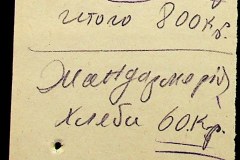 итого 800 кр.
Жандармерія
хлеба 60. Кр.